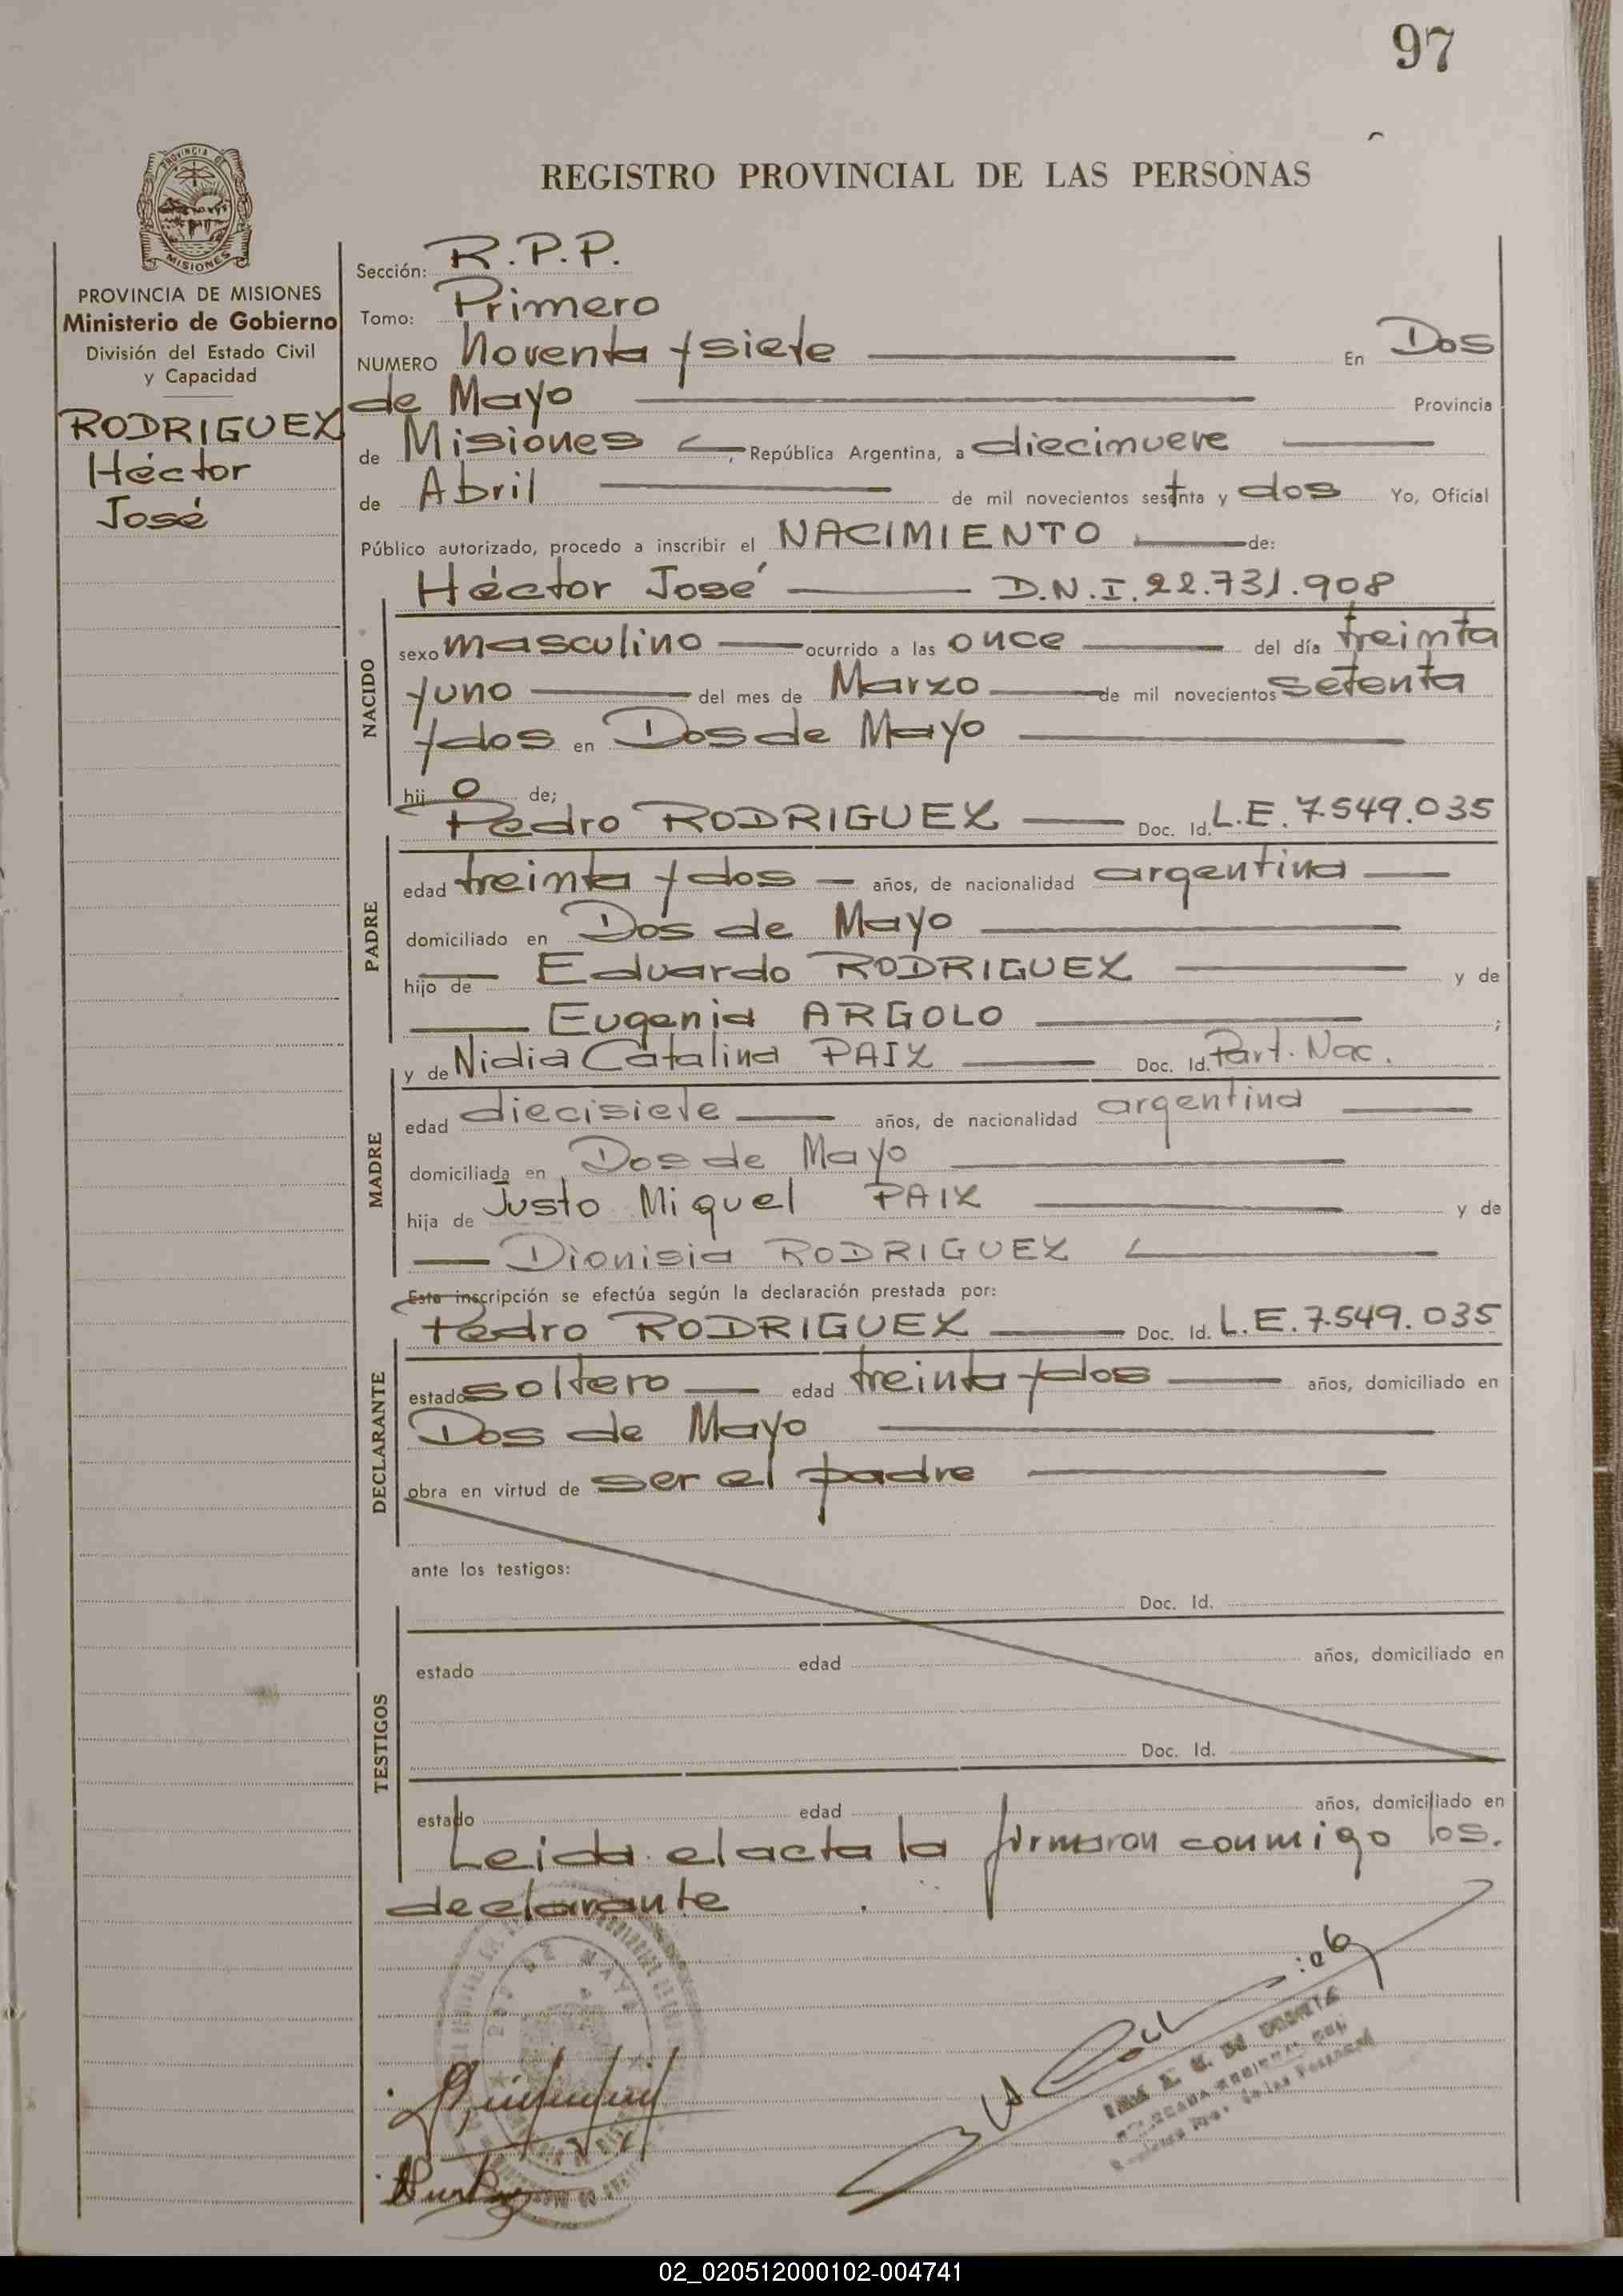 97
REGISTRO PROVINCIAL DE LAS PERSONAS
PROVINCIA DE
MISIONES
PROVINCIA DE MISIONES
Ministerio de Gobierno
División del Estado Civil
y Capacidad
RODRIGUEZ
Héctor
José
Sección: R.P.P.
Tomo: Primero
NUMERO Noventa y siete En Dos
de Mayo Provincia
de Misiones, República Argentina, a diecinueve
de Abril de mil novecientos setenta y dos Yo, Oficial
Público autorizado, procedo a inscribir el NACIMIENTO de:
Héctor José D.N.I. 22.731.908
NACIDO
sexo masculino ocurrido a las once del día treinta
y uno del mes de Marzo de mil novecientos setenta
y dos en Dos de Mayo
hij o de;
Pedro RODRIGUEZ Doc. Id. L.E. 7.549.035
PADRE
edad treinta y dos años, de nacionalidad argentina
domiciliado en Dos de Mayo
hijo de Eduardo RODRIGUEZ y de
Eugenia ARGOLO ;
y de Nidia Catalina PAIZ Doc. Id. Part. Nac.
MADRE
edad diecisiete años, de nacionalidad argentina
domiciliada en Dos de Mayo
hija de Justo Miguel PAIZ y de
Dionisia RODRIGUEZ
Esta inscripción se efectúa según la declaración prestada por:
Pedro RODRIGUEZ Doc. Id. L.E. 7.549.035
DECLARANTE
estado soltero edad treinta y dos años, domiciliado en
Dos de Mayo
obra en virtud de ser el padre
ante los testigos:
Doc. Id.
TESTIGOS
estado edad años, domiciliado en
Doc. Id.
estado edad años, domiciliado en
Leida el acta la firmaron conmigo los.
declarante
DOS DE MAYO
02_020512000102-004741